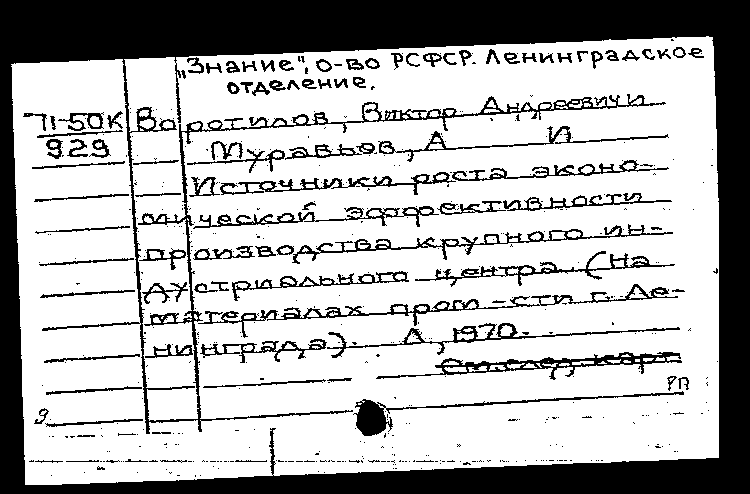 „Знание", о-во РСФСР. Ленинградское
отделение.
71-50К Воротилов, Виктор Андреевич и
929 Муравьов, А И
Источники роста эконо-
мической эффективности
производства крупного ин-
дустриального центра (на
материалах пром-сти г. Ле-
нинграда). Л, 1970.
См. след. карт.
РП
9